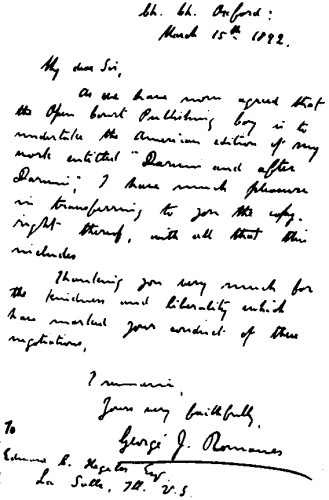 Ch. Ch. Oxford:
March 15th 1892.
My dear Sir,
As we have now agreed that
the Open Court Publishing Coy is to
undertake the American edition of my
work entitled "Darwin and after
Darwin", I have much pleasure
in transferring to you the copy-
right thereof, with all that this
includes
Thanking you very much for
the kindness and liberality which
have marked your conduct of these
negotiations,
I remain,
Yours very faithfully,
George J. Romanes
To
Edward C. Hegeler Esq.
La Salle, Ill. U.S.